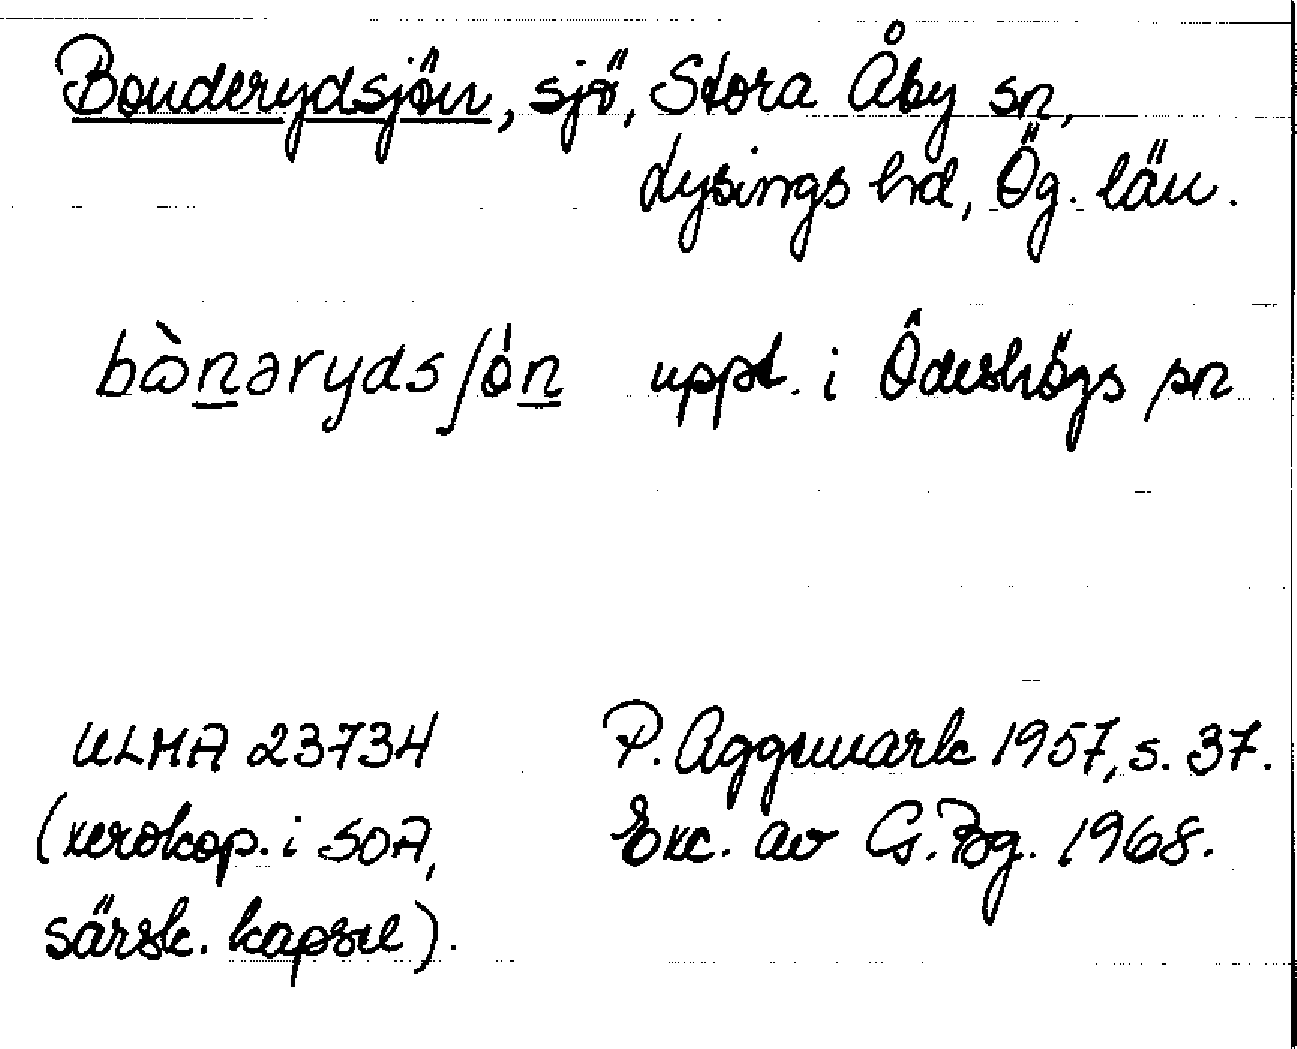 Bonderydsjön, sjö, Stora Åby sn,
Lysings hd, Ög. län.
bὼnəryds∫ö́n uppt. i Ödeshögs sn
ULMA 23734 P. Aggmark 1957, s. 37.
(xerokop. i SOA, Exc. av G. Bg. 1968.
särsk. kapsel).